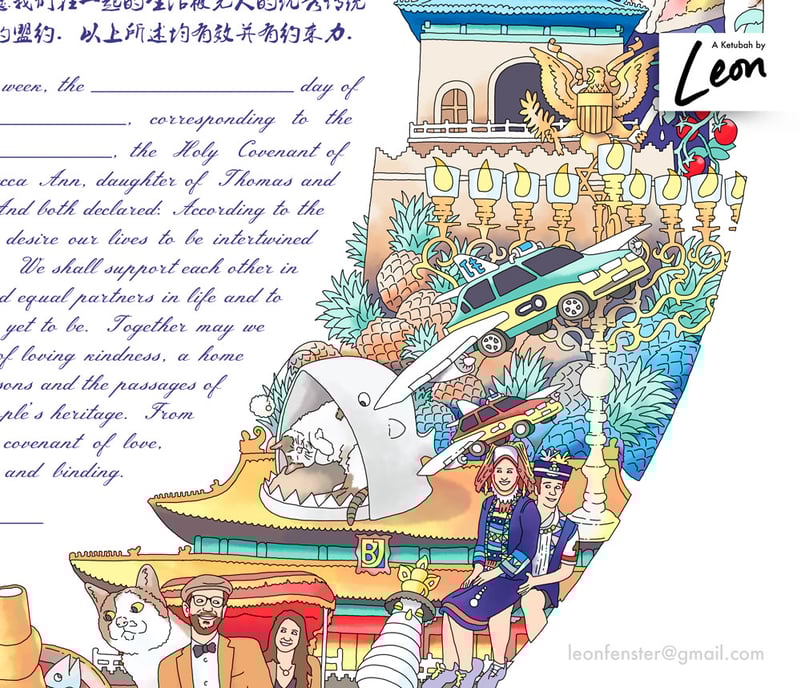 我们在一起的生活被先人的优秀传统
的盟约. 以上所述均有效并有约束力.
week, the ____________ day of
____________, corresponding to the
____________, the Holy Covenant of
cca Ann, daughter of Thomas and
And both declared: According to the
desire our lives to be intertwined
We shall support each other in
d equal partners in life and to
yet to be. Together may we
of loving kindness, a home
sons and the passages of
ple's heritage. From
covenant of love,
and binding.
A Ketubah by
Leon
B
leonfenster@gmail.com